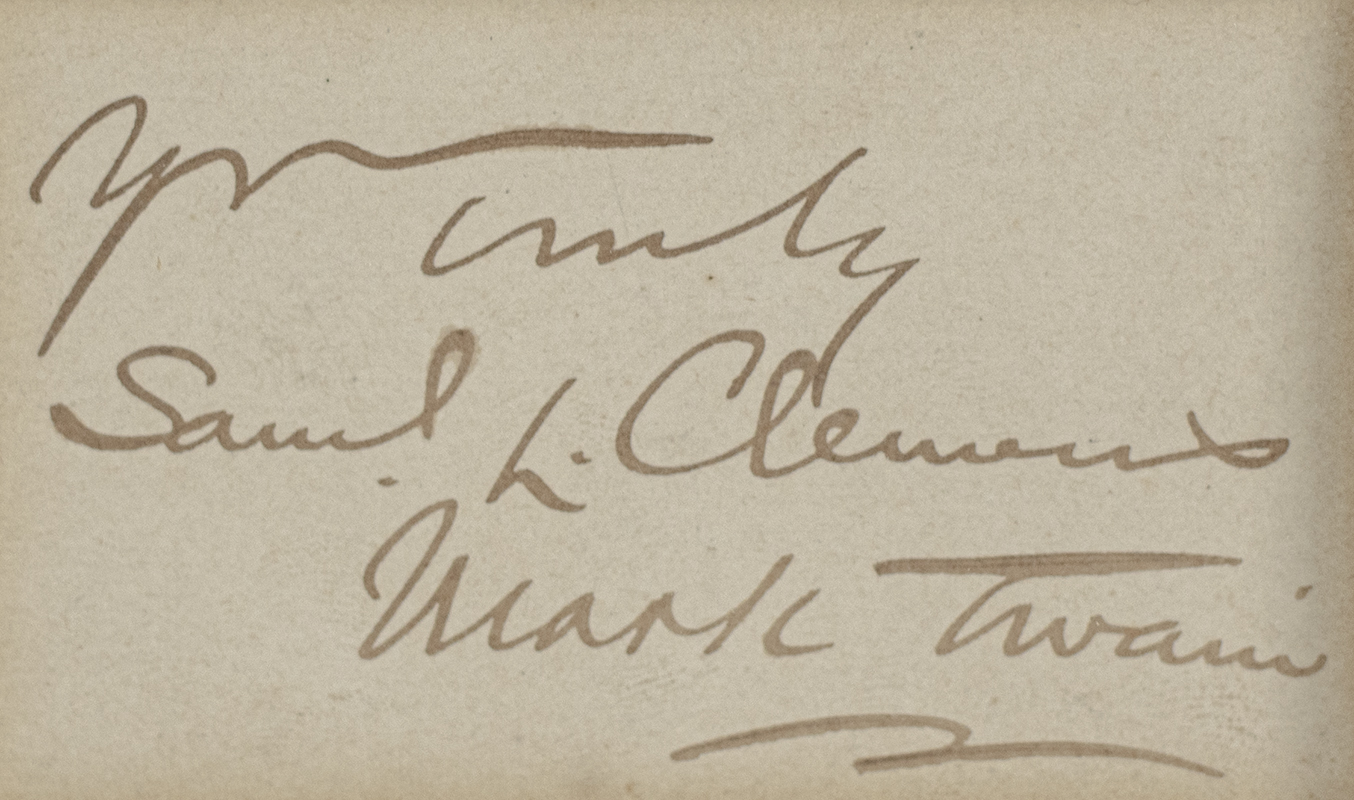 Yrs truly
Saml. L. Clemens
Mark Twain